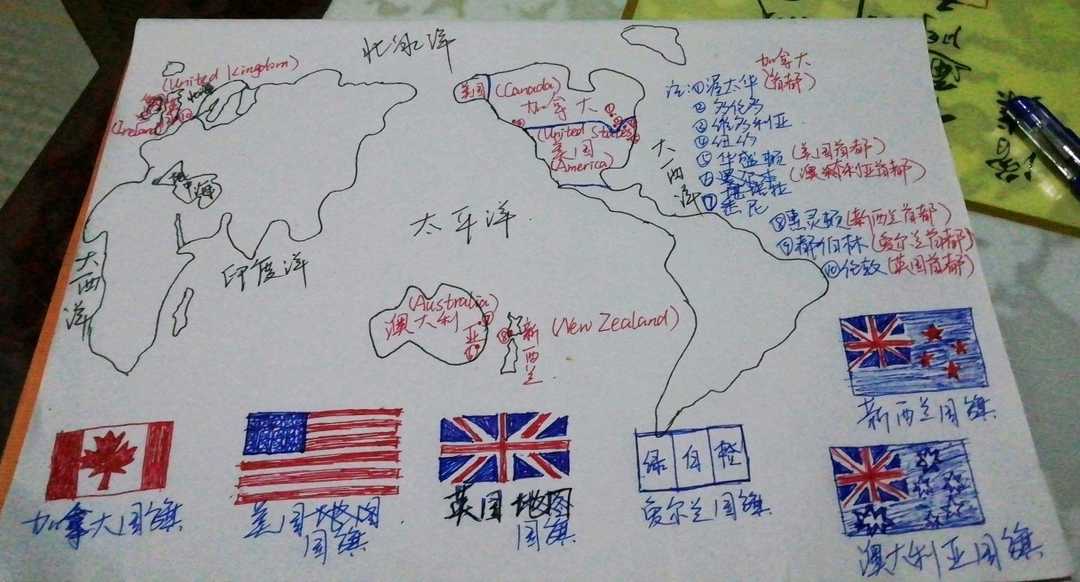 北冰洋
(United Kingdom)
(Ireland)
地中海
大西洋
印度洋
太平洋
美国
(Canada)
加拿大
(United States)
美国
(America)
大西洋
(Australia)
澳大利亚
新西兰
(New Zealand)
注:①渥太华(加拿大首都)
②多伦多
③维多利亚
④纽约
⑤华盛顿(美国首都)
⑥堪培拉(澳大利亚首都)
⑦悉尼
⑧惠灵顿(新西兰首都)
⑨都伯林(爱尔兰首都)
⑩伦敦(英国首都)
新西兰国旗
加拿大国旗
美国地图
国旗
英国地图
国旗
绿 白 橙
爱尔兰国旗
澳大利亚国旗